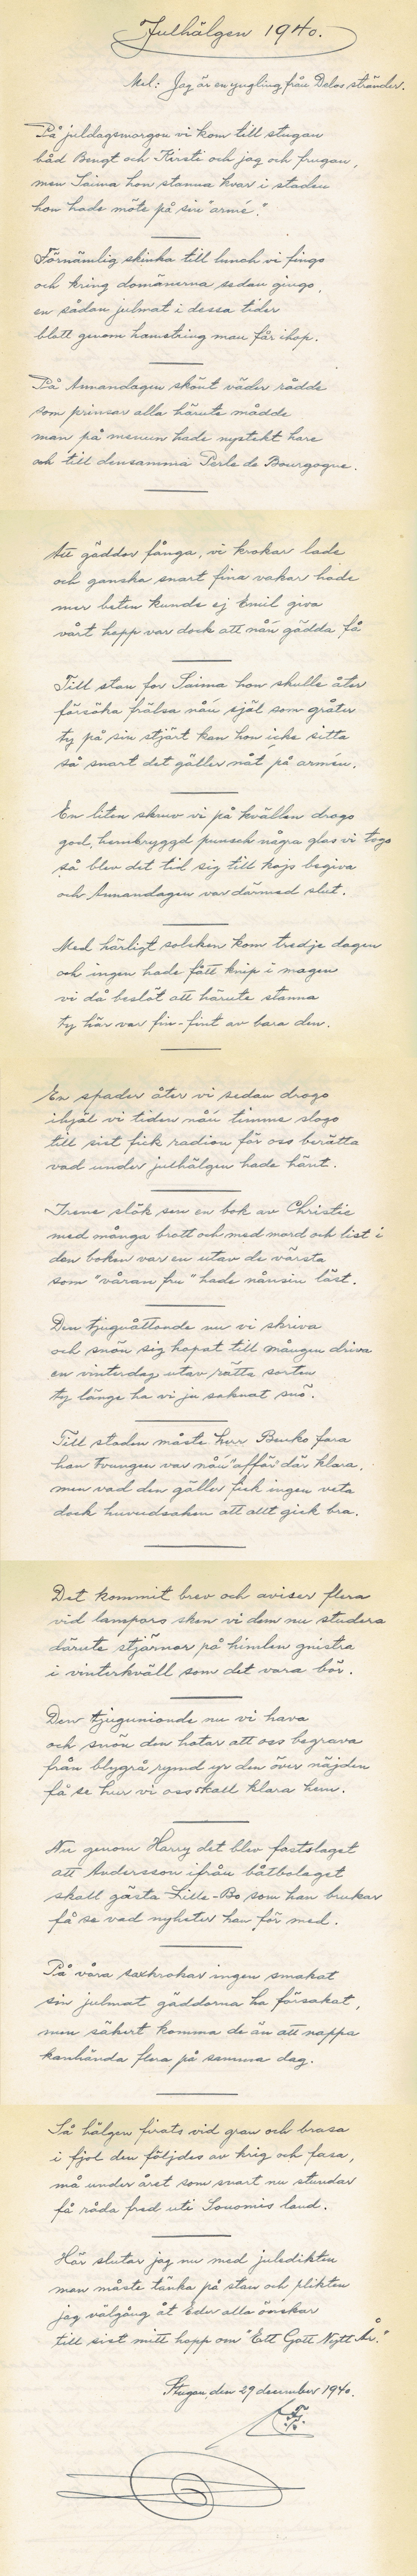 Julhälgen 1940.
Mel: Jag är en yngling från Delos stränder.
På juldagsmorgon vi kom till stugan
båd Bengt och Kirsti och jag och frugan,
men Saima hon stanna kvar i staden
hon hade möte på sin "armé."
Förnämlig skinka till lunch vi fingo
och kring domänerna sedan gingo,
en sådan julmat i dessa tider
blott genom hamstring man får ihop.
På Annandagen skönt väder rådde
som prinsar alla härute mådde
man på menun hade nystekt hare
och till densamma Perle de Bourgogne.
Att gäddor fånga, vi krokar lade
och ganska snart fina vakar hade
mer beten kunde ej Emil giva
vårt hopp var dock att nån gädda få
Till stan for Saima hon skulle åter
försöka frälsa nån själ som gråter
ty på sin stjärt kan hon icke sitta
så snart det gäller nåt på armén.
En liten skruv vi på kvällen drogo
god, hembryggd punsch några glas vi togo
så blev det tid sig till kojs begiva
och Annandagen var därmed slut.
Med härligt solsken kom tredje dagen
och ingen hade fått knip i magen
vi då beslöt att härute stanna
ty här var fin-fint av bara den.
En spader åter vi sedan drogo
ihjäl vi tiden nån timme slogo
till sist fick radion för oss berätta
vad under julhälgen hade hänt.
Irene slök sen en bok av Christie
med många brott och med mord och list i
den boken var en utav de värsta
som "våran fru" hade nånsin läst.
Den tjuguåttonde nu vi skriva
och snön sig hopat till mången driva
en vinterdag utav rätta sorten
ty länge ha vi ju saknat snö.
Till staden måste herr Benko fara
han tvungen var nån "affär" där klara,
men vad den gäller fick ingen veta
dock huvudsaken att allt gick bra.
Det kommit brev och aviser flera
vid lampans sken vi dem nu studera
därute stjärnor på himlen gnistra
i vinterkväll som det vara bör.
Den tjugunionde nu vi hava
och snön den hotar att oss begrava
från blygrå rymd yr den över näjden
få se hur vi oss skall klara hem.
Nu genom Harry det blev fastslaget
att Andersson ifrån båtbolaget
skall gästa Lille-Bo som han brukar
få se vad nyheter han för med.
På våra saxkrokar ingen smakat
sin julmat gäddorna ha försakat,
men säkert komma de än att nappa
kanhända flera på samma dag.
Så hälgen firats vid gran och brasa
i fjol den följdes av krig och fasa,
må under året som snart nu stundar
få råda fred uti Suomis land.
Här slutar jag nu med juledikten
man måste tänka på stan och plikten
jag välgång åt Eder alla önskar
till sist mitt hopp om "Ett Gott Nytt År."
Stugan, den 29 december 1940.